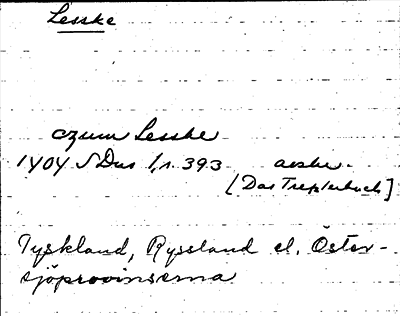 Lesske
czum Lesske
1404 SDns 1, n. 393 avskr.
[Das Treßlerbuch]
Tyskland, Ryssland el. Öster-
sjöprovinserna